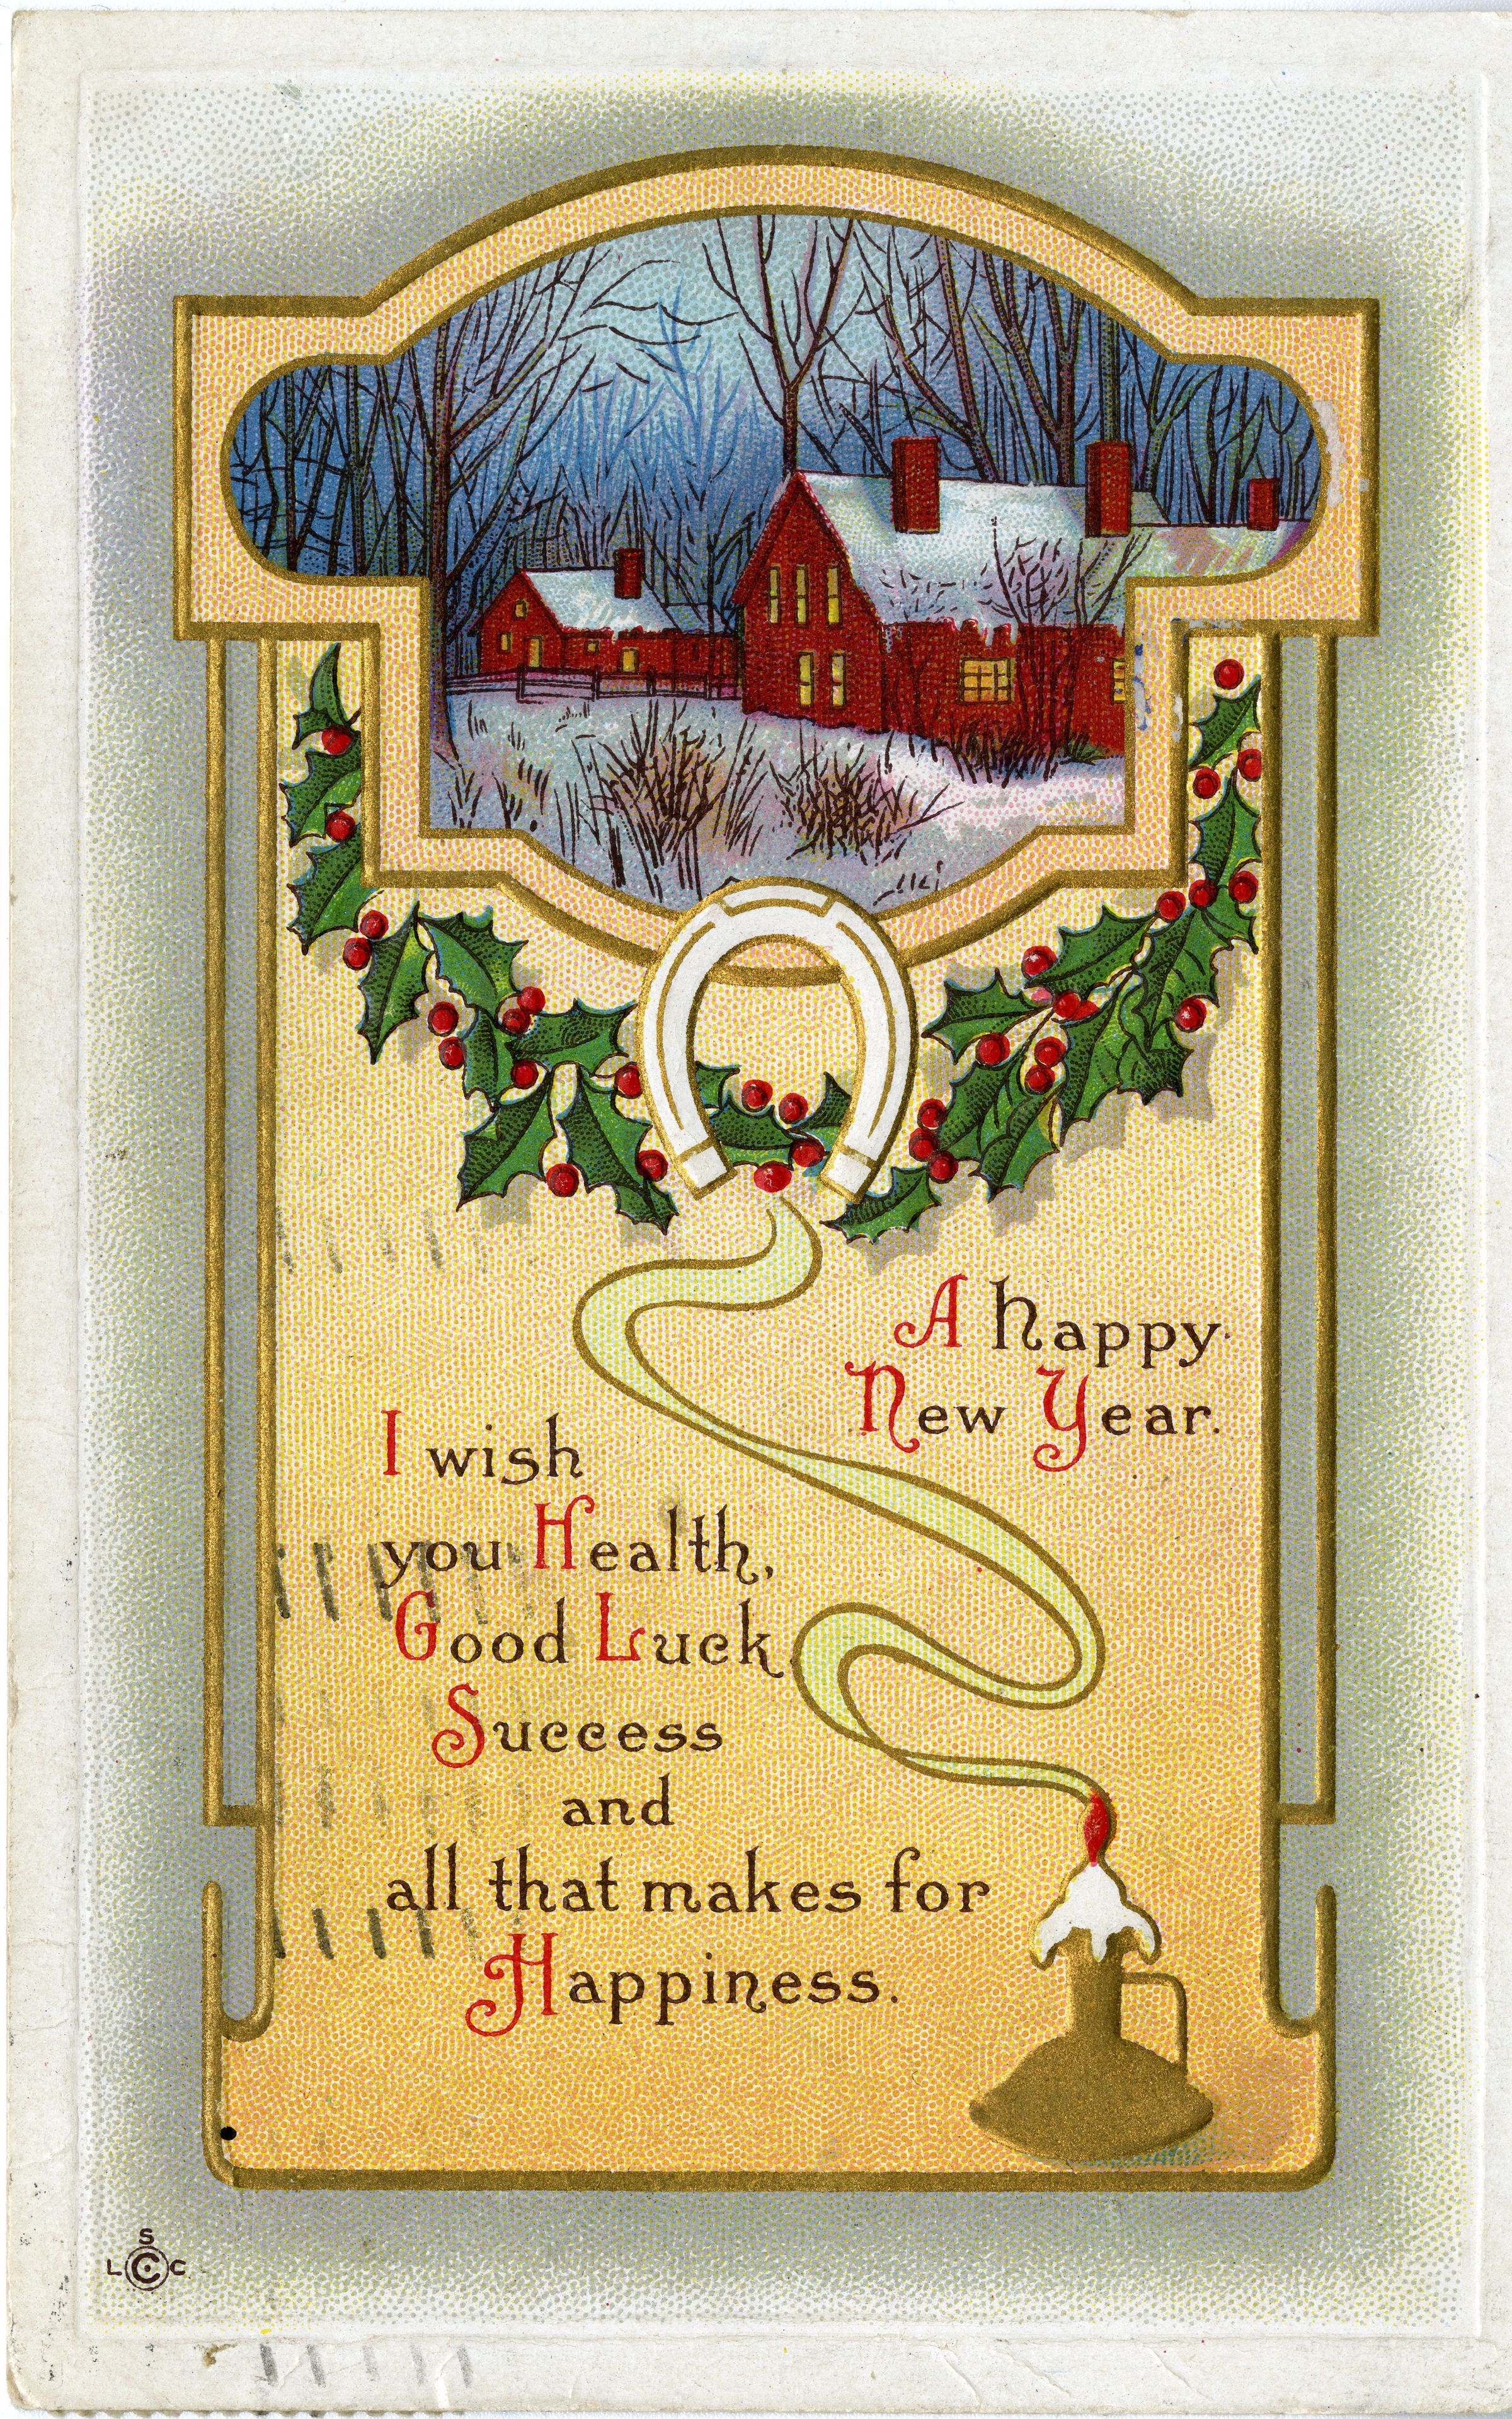 A happy
New Year.
I wish
you Health,
Good Luck,
Success
and
all that makes for
Happiness.
S
L C C